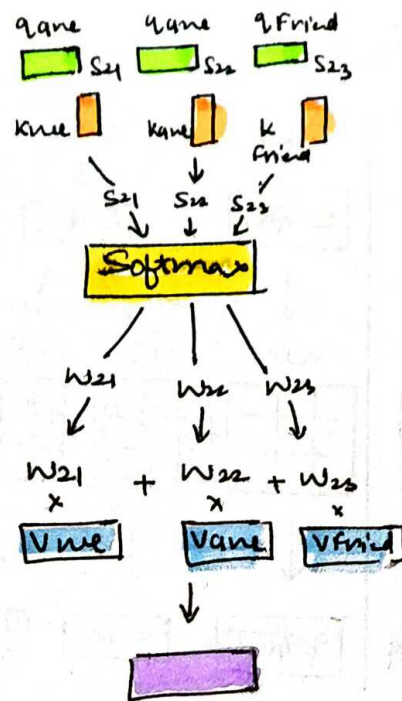 qane qane qFriend
S21 S22 S23
Kwe Kane K
Friend
S21 S22 S23
Softmax
W21 W22 W23
W21 + W22 + W23
x x x
Vwe Vane VFriend